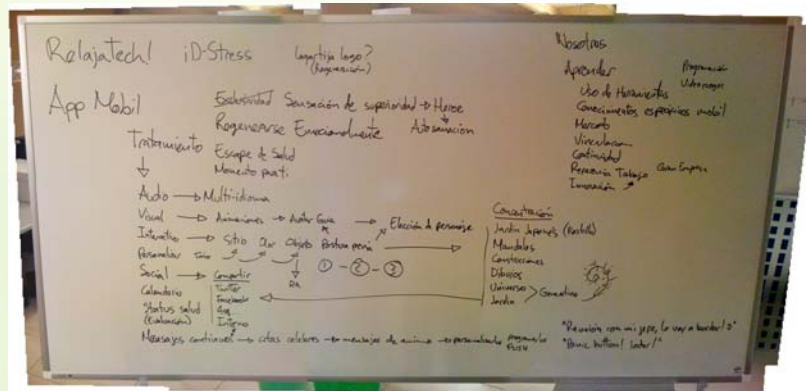 RelajaTech! iD-Stress Lagartija logo?
(Regeneración)
App Mobil
Exclusividad Sensación de superioridad → Heroe
Regenerarse Emocionalmente Autosanación
Tratamiento
Escape de Salud
Momento para ti
Audio → Multi-idioma
Visual → Animaciones → Avatar Guia → Elección de personaje
Interactivo → Sitio Olor Objeto Postura
Personalizar
① - ② - ③
RA
Social → Compartir
Twitter
Facebook
Interno
Calendario
Status salud
(Evaluación)
Mensajes continuos → citas celebres → mensajes de animo → personalizados
Push
Concentración
Jardín Japonés (Rastrillo)
Mandalas
Construcciones
Dibujos
Universo
Jardín
Generativo
Nosotros
Aprender
Programación
Videojuegos
Uso de Herramientas
Conocimientos específicos mobil
Mercado
Vinculación
Continuidad
Trabajo
Innovación
"Reunión con mi jefe, lo voy a
"Panic button!